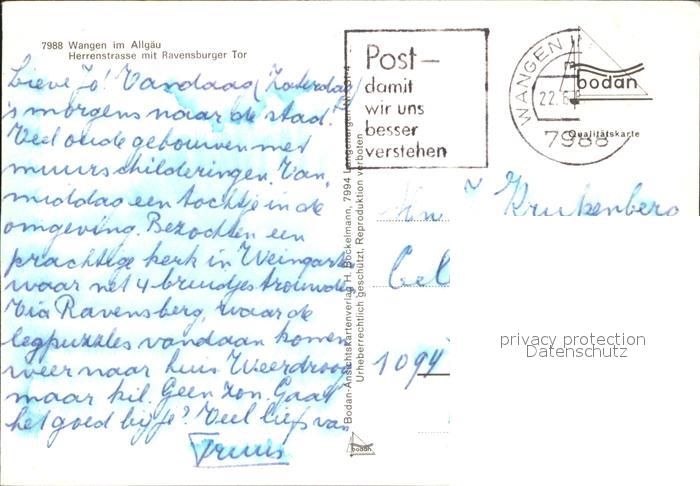 7988 Wangen im Allgäu
Herrenstrasse mit Ravensburger Tor
Lieve Jo! Vandaag (Zaterdag)
's morgens naar de stad!
Veel oude gebouwen met
muurschilderingen. Van
middag een tochtje in de
omgeving. Bezochten een
prachtige kerk in Weingarten
waar net 4 bruidjes trouwden
Via Ravensberg, waar de
legpuzzles vandaan komen
weer naar huis Weer droog
maar kil. Geen zon. Gaat
het goed bij je? Veel liefs van
Truus
Post—
damit
wir uns
besser
verstehen
WANGEN
22.6
7988
bodan
Qualitätskarte
Bodan-Ansichtskartenverlag H. Bockelmann, 7994 Langenargen
Urheberrechtlich geschützt, Reproduktion verboten
bodan
Krukenberg
1094
privacy protection
Datenschutz